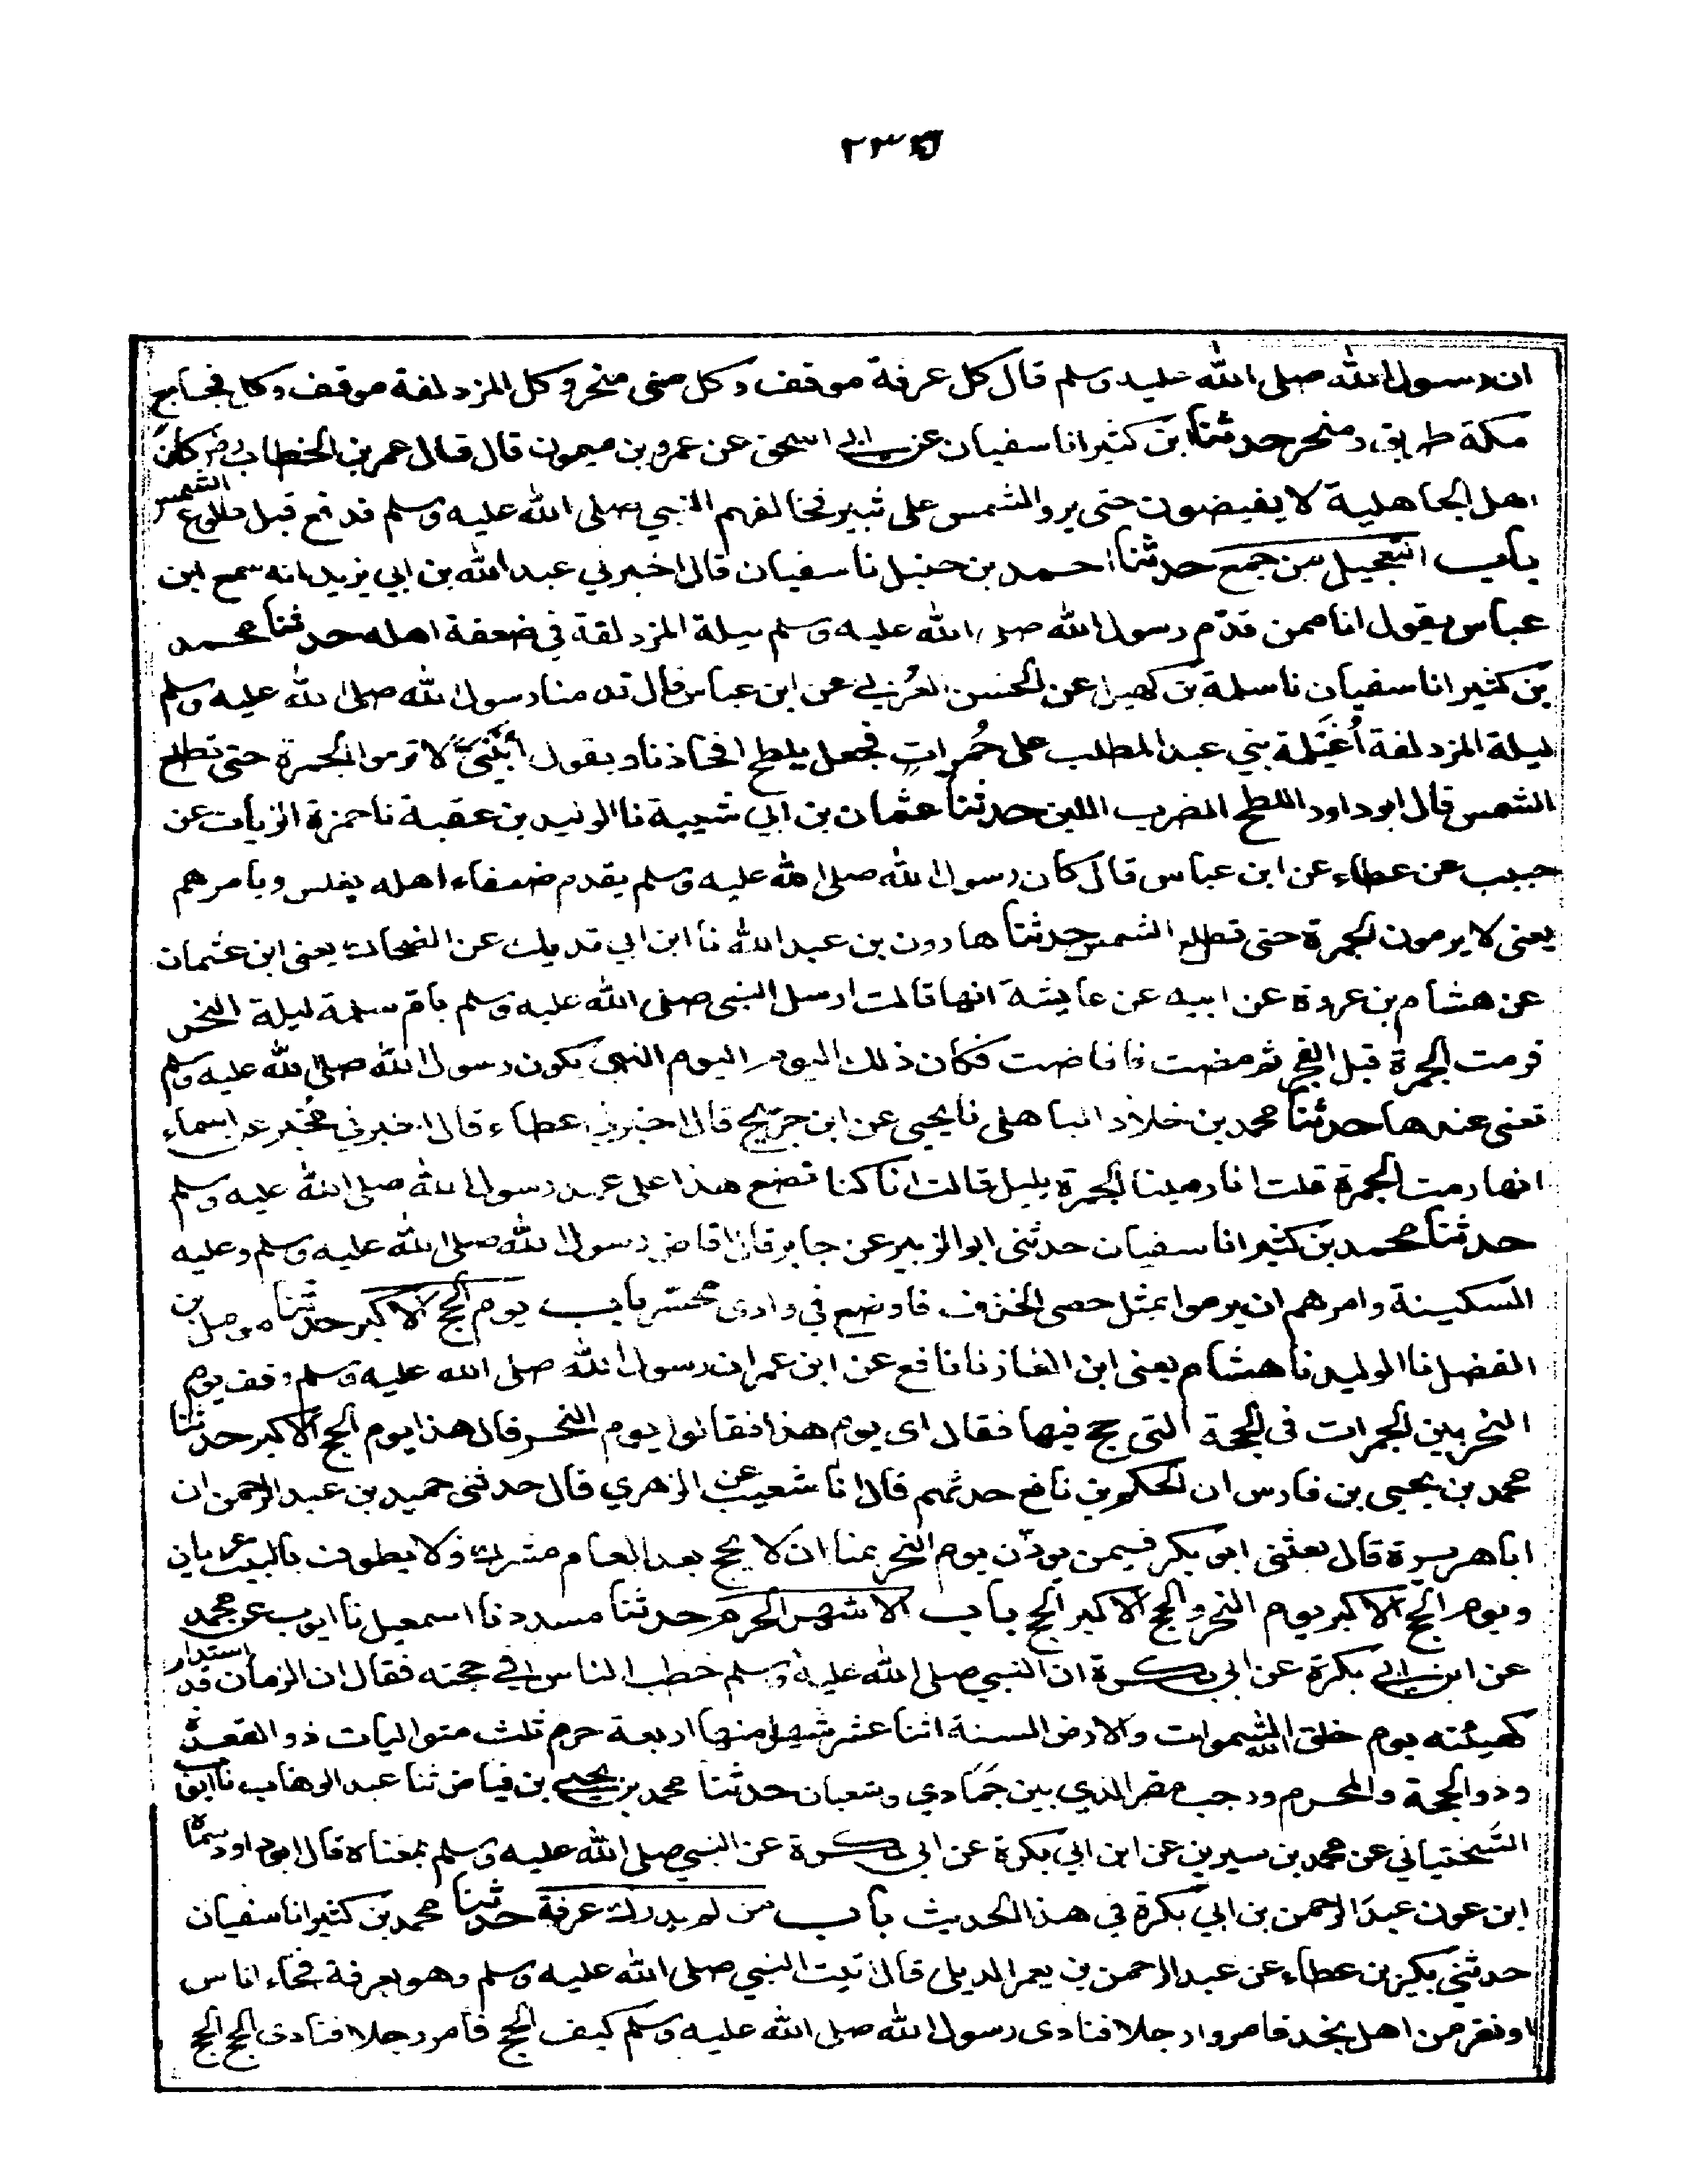 ٢٣٥
ان رسول الله صلى الله عليه وسلم قال كل عرفة موقف وكل منى منحر وكل المزدلفة موقف وكل فجاج
مكة طريق ومنحر حدثنا ابن كثير انا سفيان عن ابي اسحق عن عمرو بن ميمون قال قال عمر بن الخطاب رض كان
اهل الجاهلية لا يفيضون حتى يروا الشمس على ثبير فخالفهم النبي صلى الله عليه وسلم فدفع قبل طلوع الشمس
باب التعجيل من جمع حدثنا احمد بن حنبل نا سفيان قال اخبرني عبد الله بن ابي يزيد انه سمع ابن
عباس يقول انا ممن قدّم رسول الله صلى الله عليه وسلم ليلة المزدلفة في ضعفة اهله حدثنا محمد
بن كثير انا سفيان نا سلمة بن كهيل عن الحسن العُرني عن ابن عباس قال قدمنا رسول الله صلى الله عليه وسلم
ليلة المزدلفة اُغَيْلمة بني عبد المطلب على حُمراتٍ فجعل يلطح افخاذنا ويقول أبَيْنيّ لا ترموا الجمرة حتى تطلع
الشمس قال ابو داود اللطح الضرب اللين حدثنا عثمان بن ابي شيبة نا الوليد بن عقبة نا حمزة الزيات عن
حبيب عن عطاء عن ابن عباس قال كان رسول الله صلى الله عليه وسلم يقدم ضعفاء اهله بغلس ويامرهم
يعنى لا يرمون الجمرة حتى تطلع الشمس حدثنا هارون بن عبد الله نا ابن ابي فديك عن الضحاك يعنى ابن عثمان
عن هشام بن عروة عن ابيه عن عايشة انها قالت ارسل النبي صلى الله عليه وسلم بام سلمة ليلة النحر
فرمت الجمرة قبل الفجر ثم مضت فافاضت فكان ذلك اليوم اليوم الذي يكون رسول الله صلى الله عليه وسلم
تعنى عندها حدثنا محمد بن خلاد الباهلى نا يحيى عن ابن جريج قال اخبرني عطاء قال اخبرني مخبر عن اسماء
انها رمت الجمرة قلت انا رمينا الجمرة بليل قالت انا كنا نصنع هذا على عهد رسول الله صلى الله عليه وسلم
حدثنا محمد بن كثير انا سفيان حدثنى ابو الزبير عن جابر قال افاض رسول الله صلى الله عليه وسلم وعليه
السكينة وامرهم ان يرموا بمثل حصى الخذف فاوضع في وادى محسّر باب يوم الحج الاكبر حدثنا مومل بن
الفضل نا الوليد نا هشام يعنى ابن الغاز نا نافع عن ابن عمر ان رسول الله صلى الله عليه وسلم وقف يوم
النحر بين الجمرات في الحجة التى حج فيها فقال اى يوم هذا فقالوا يوم النحر قال هذا يوم الحج الاكبر حدثنا
محمد بن يحيى بن فارس ان الحكم بن نافع حدثهم قال انا شعيب عن الزهري قال حدثنى حميد بن عبد الرحمن ان
ابا هريرة قال بعثنى ابو بكر فيمن يوذّن يوم النحر بمنا ان لا يحج بعد العام مشرك ولا يطوف بالبيت عريان
ويوم الحج الاكبر يوم النحر والحج الاكبر الحج باب الاشهر الحرم حدثنا مسدد نا اسمعيل نا ايوب عن محمد
عن ابن ابي بكرة عن ابي بكرة ان النبي صلى الله عليه وسلم خطب الناس في حجته فقال ان الزمان قد استدار
كهيئته يوم خلق الله السموات والارض السنة اثنا عشر شهرا منها اربعة حرم ثلث متواليات ذو القعدة
وذو الحجة والمحرم ورجب مضر الذي بين جمادي وشعبان حدثنا محمد بن يحيى بن فياض ثنا عبد الوهاب نا ايوب
السختياني عن محمد بن سيرين عن ابن ابي بكرة عن ابي بكرة عن النبي صلى الله عليه وسلم بمعناه قال ابو داود سماه
ابن عون عبد الرحمن بن ابي بكرة في هذا الحديث باب من لم يدرك عرفة حدثنا محمد بن كثير انا سفيان
حدثني بكير بن عطاء عن عبد الرحمن بن يعمر الديلى قال اتيت النبي صلى الله عليه وسلم وهو بعرفة فجاء اناس
او نفر من اهل نجد فامروا رجلا فنادى رسول الله صلى الله عليه وسلم كيف الحج فامر رجلا فنادى الحج الحج